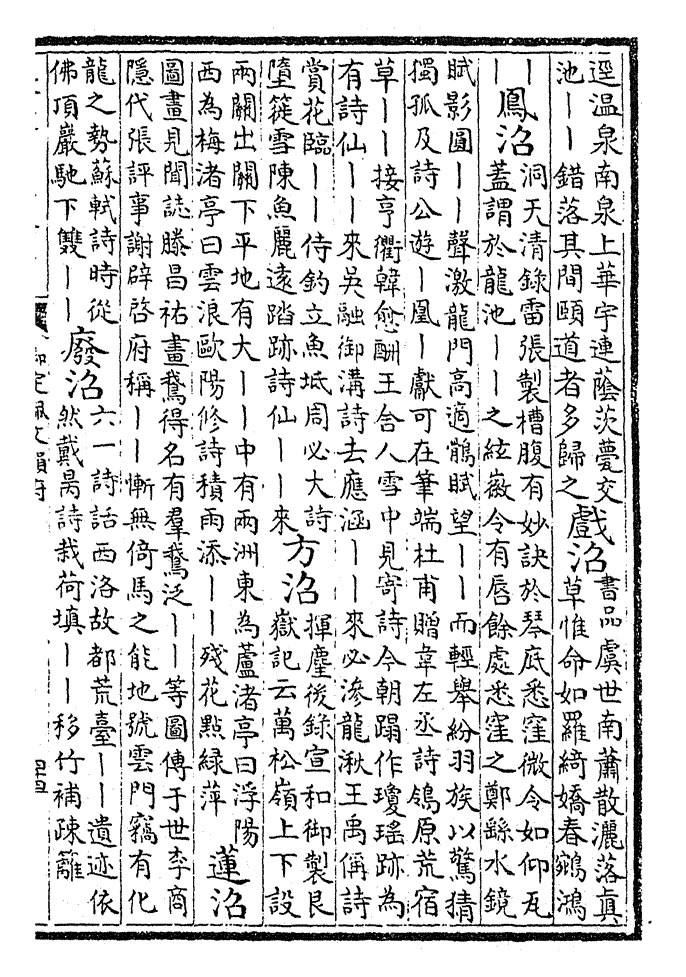 逕温泉南泉上華宇連蔭茨甍交
池丨丨錯落其間頤道者多歸之
戲沼
書品虞世南蕭散灑落真
草惟命如羅綺嬌春鵷鴻
丨
丨
鳳沼
洞天清錄雷張製槽腹有妙訣於琴底悉窪微令如仰瓦
蓋謂於龍池丨丨之絃嶶令有唇餘處悉窪之鄭繇水鏡
賦影圓丨丨聲激龍門高適鶻賦望丨丨而輕舉紛羽族以驚猜
獨孤及詩公遊丨凰丨獻可在筆端杜甫贈韋左丞詩鴒原荒宿
草丨丨接亨衢韓愈酬王舍人雪中見寄詩今朝蹋作瓊瑤跡為
有詩仙丨丨來吳融御溝詩去應涵丨丨來必滲龍湫王禹偁詩
賞花臨丨丨侍釣立魚坻周必大詩
墮簁雪陳魚麗遠踏跡詩仙丨丨來
方沼
揮麈後錄宣和御製艮
嶽記云萬松嶺上下設
兩關出關下平地有大丨丨中有兩洲東為蘆渚亭曰浮陽
西為梅渚亭曰雲浪歐陽修詩積雨添丨丨殘花點綠萍
蓮沼
圖畫見聞誌滕昌祐畫鵞得名有羣鵞泛丨丨等圖傳于世李商
隱代張評事謝辟啓府稱丨丨慚無倚馬之能地號雲門竊有化
龍之勢蘇軾詩時從
佛頂巖馳下雙丨丨
廢沼
六一詩話西洛故都荒臺丨丨遺迹依
然戴昺詩栽荷填丨丨移竹補疎籬